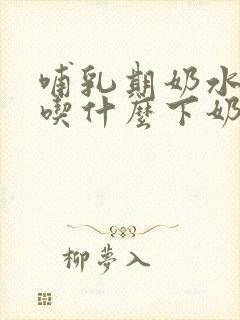 哺乳期奶水
喫什麼下奶
柳夢入